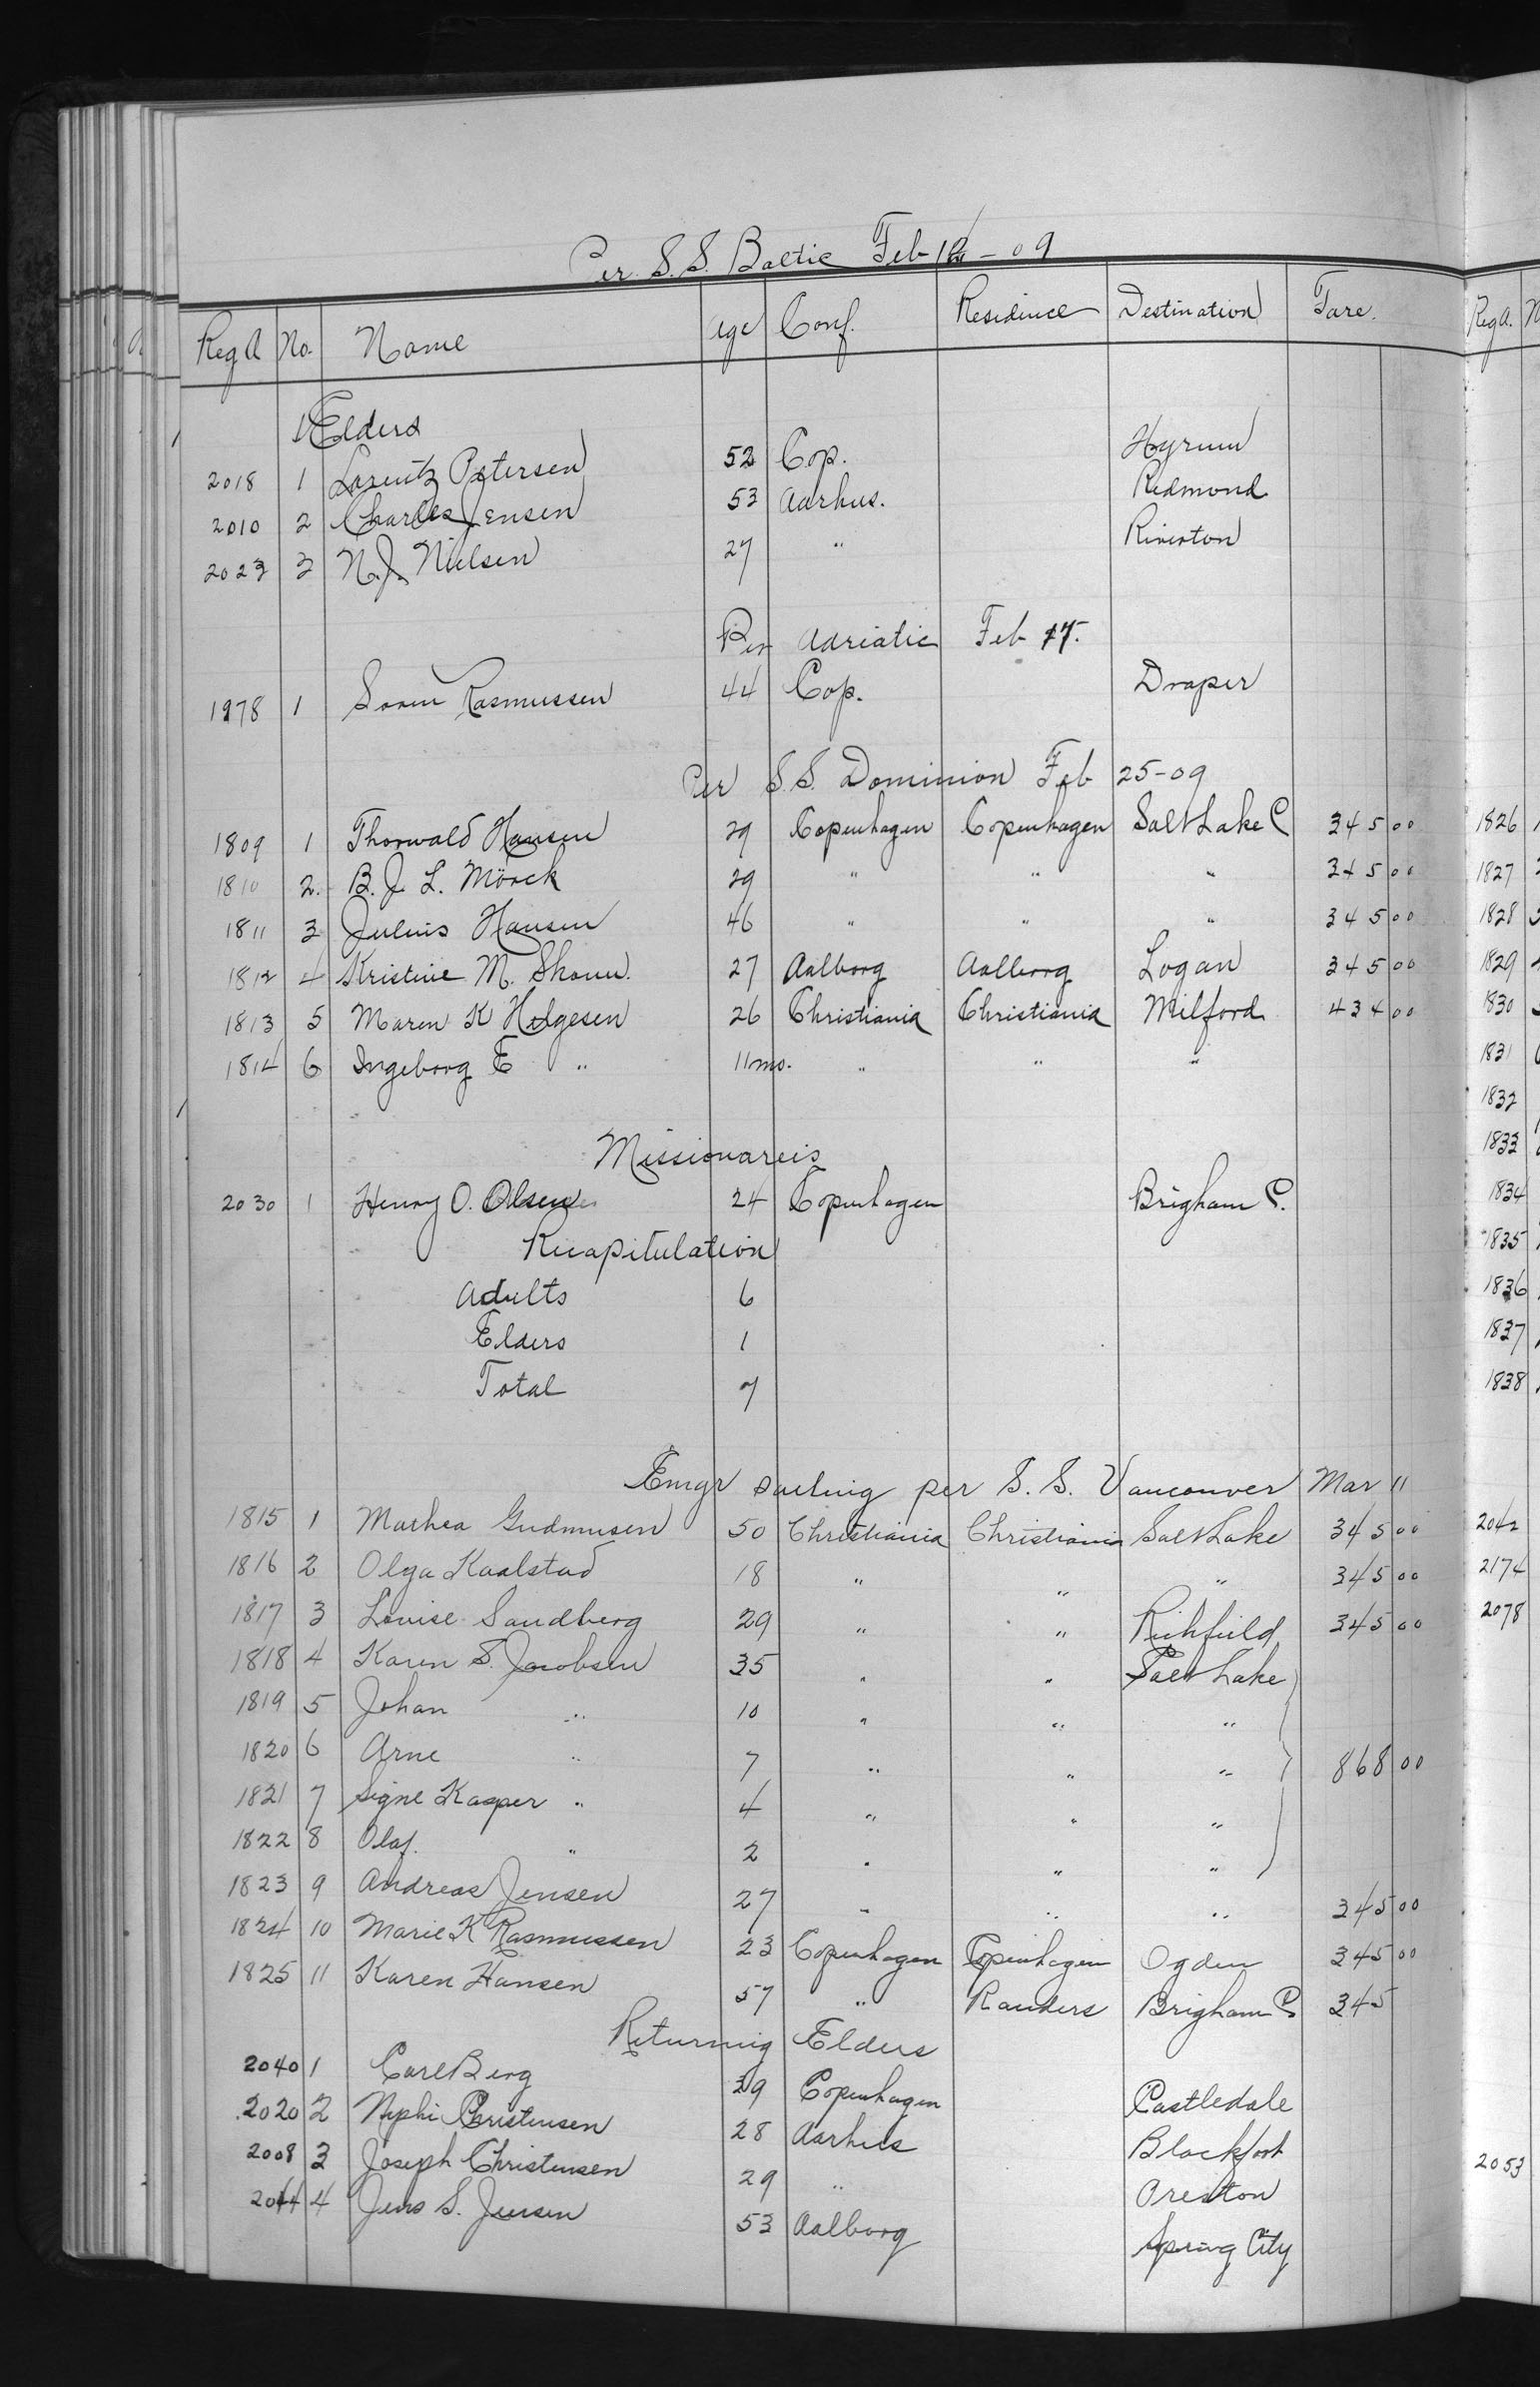 Per S.S. Baltic Feb -09
Reg A No. Name age Conf. Residence Destination Fare.
Elders
2018 1 Lorentz Petersen 52 Cop. Hyrum
2010 2 Charles Jensen 53 Aarhus. Redmond
2023 3 N.J. Nielsen 27 " Riverton
Per Adriatic Feb 17.
1978 1 Soren Rasmussen 44 Cop. Draper
Per S.S. Dominion Feb 25-09
1809 1 Thorwald Hansen 29 Copenhagen Copenhagen Salt Lake C 345 00
1810 2. B.J.L. Mörck 29 " " " 345 00
1811 3 Julius Hansen 46 " " " 345 00
1812 4 Kristine M. 27 Aalborg Aalborg Logan 345 00
1813 5 Maren K Helgesen 26 Christiania Christiania Milford 434 00
1814 6 Ingeborg E " 11mo. " " "
Missionareis
2030 1 Henry O. Olsen 24 Copenhagen Brigham C.
Recapitulation
Adults 6
Elders 1
Total 7
Emgr sailing per S.S. Vancouver Mar 11
1815 1 Mathea Gudmusen 50 Christiania Christiania Salt Lake 345 00
1816 2 Olga Kaalstad 18 " " " 345 00
1817 3 Louise Sandberg 29 " " Richfield 345 00
1818 4 Karen S. Jacobsen 35 " " Salt Lake
1819 5 Johan " 10 " " "
1820 6 Arne " 7 " " " 868 00
1821 7 Signe Kasper " 4 " " "
1822 8 Olaf. " 2 " " "
1823 9 Andreas Jensen 27 " " " 345 00
1824 10 Marie K Rasmussen 23 Copenhagen Copenhagen Ogden 345 00
1825 11 Karen Hansen 57 " Randers Brigham C 345
Returning Elders
2040 1 Carl Berg 39 Copenhagen Castledale
2020 2 Nephi Christensen 28 Aarhus Blackfoot
2008 3 Joseph Christensen 29 " Oreston
4 Jens S. Jensen 53 Aalborg Spring City
Reg A.
1826
1827
1828
1829
1830
1831
1832
1833
1834
1835
1836
1837
1838
2042
2174
2078
2053